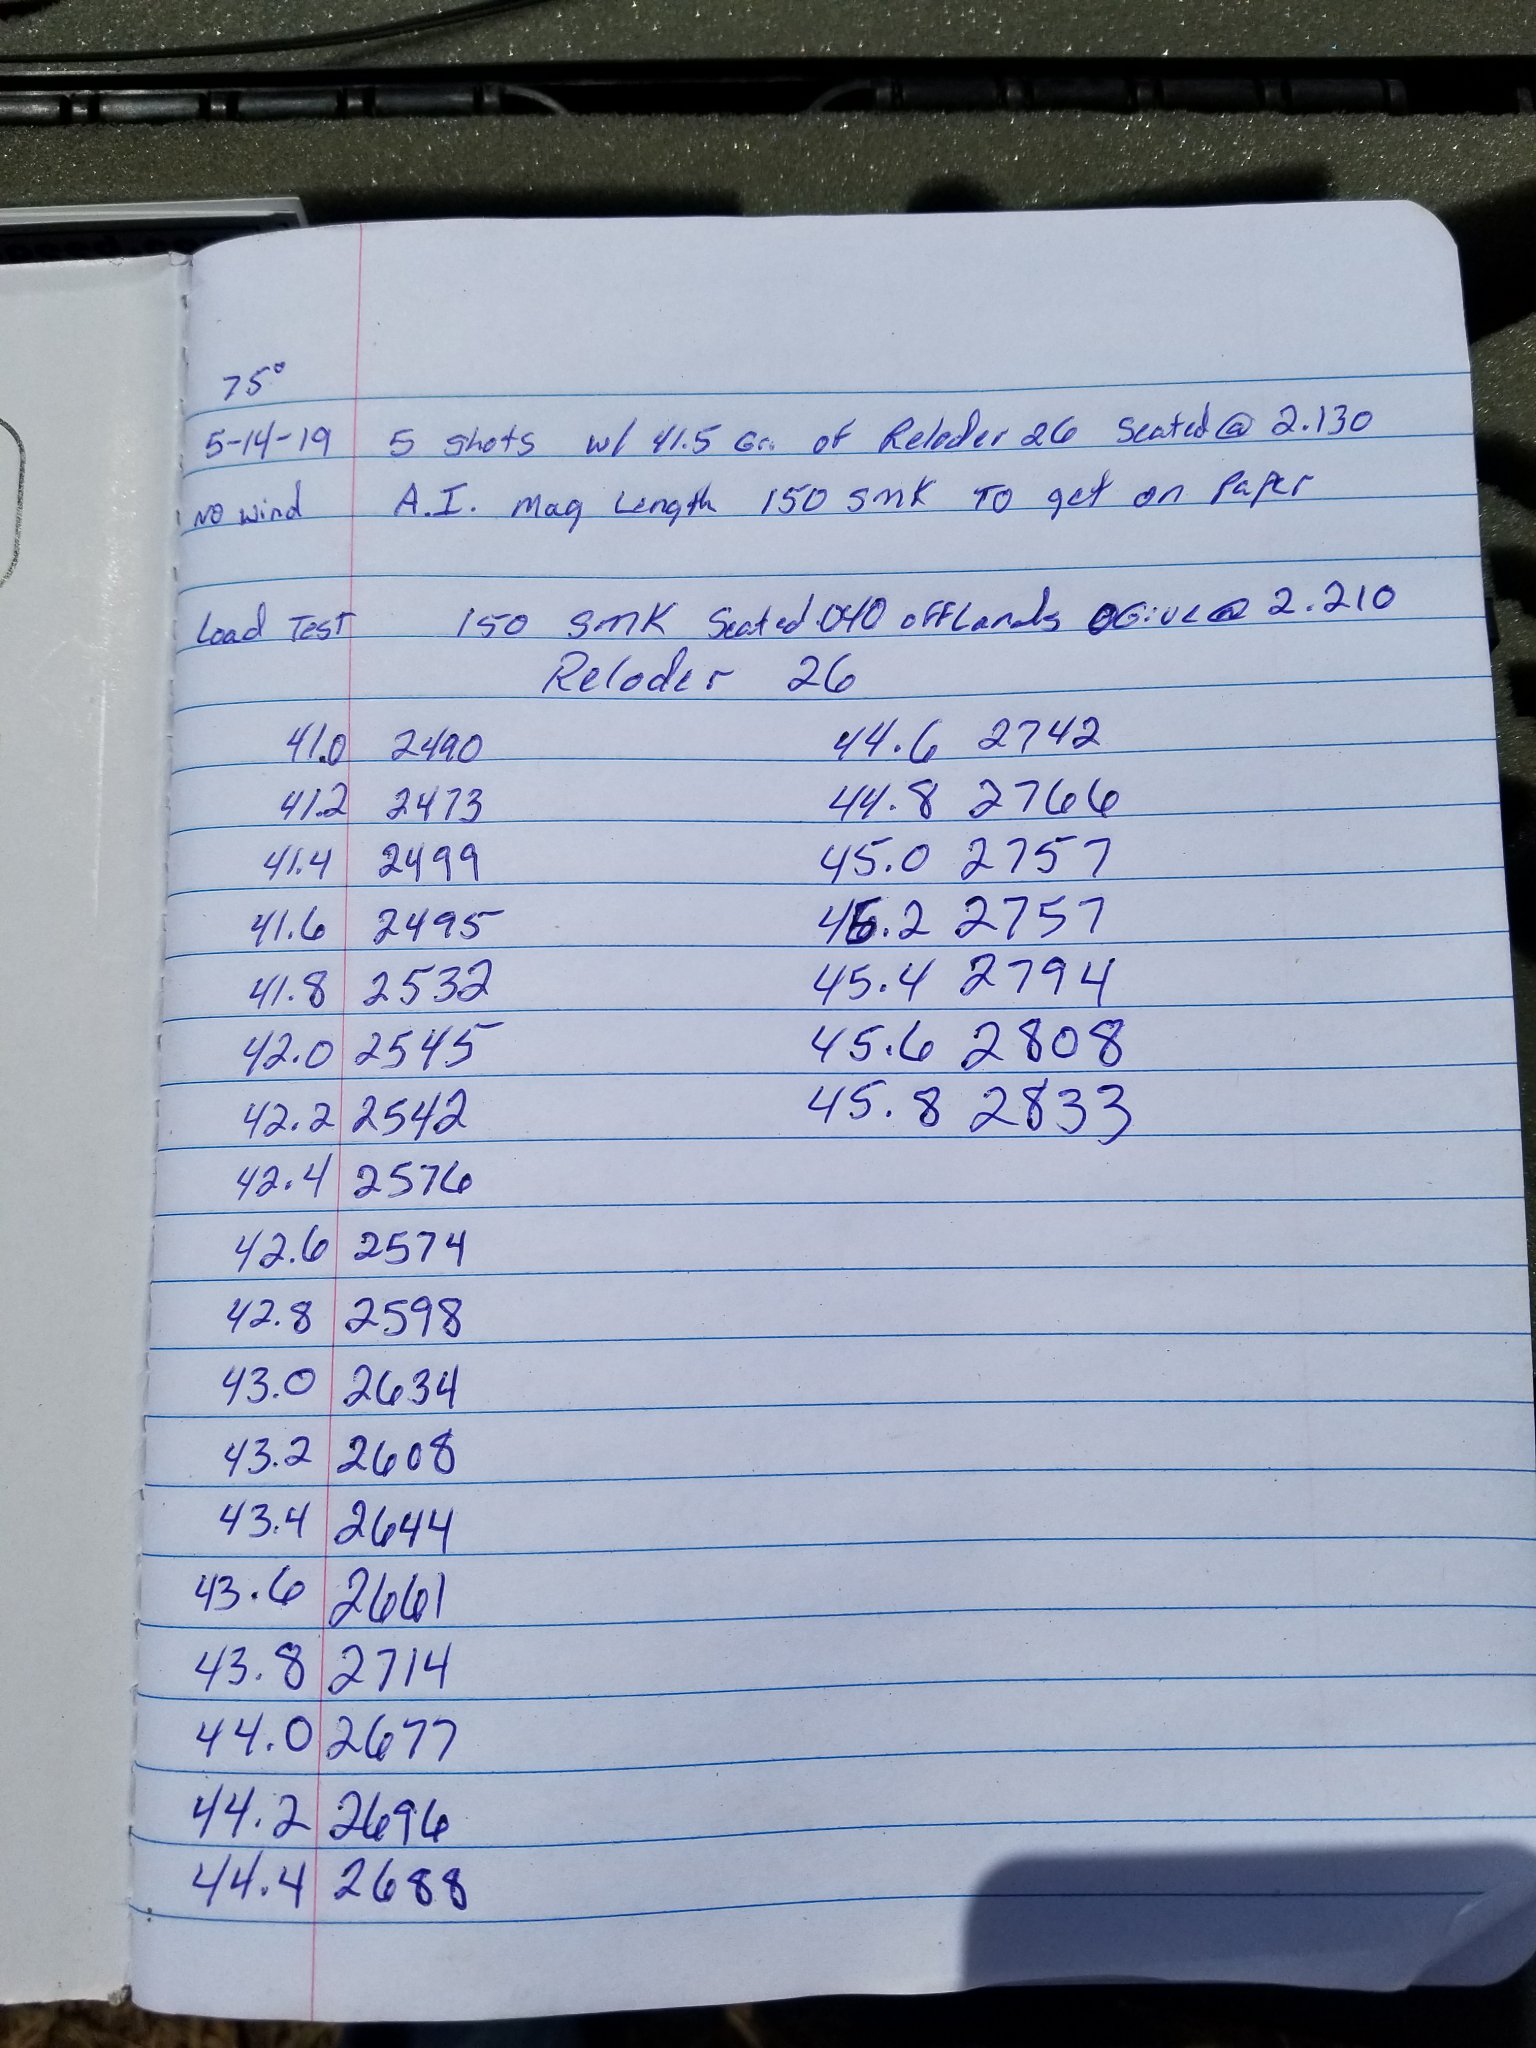 75°
5-14-19 5 shots w/ 41.5 Gr. of Reloder 26 Seated @ 2.130
No wind A.I. Mag Length 150 SMK To get on Paper
Load Test 150 SMK Seated .040 off Lands OGive @ 2.210
Reloder 26
41.0 2490
41.2 2473
41.4 2499
41.6 2495
41.8 2532
42.0 2545
42.2 2542
42.4 2576
42.6 2574
42.8 2598
43.0 2634
43.2 2608
43.4 2644
43.6 2661
43.8 2714
44.0 2677
44.2 2696
44.4 2688
44.6 2742
44.8 2766
45.0 2757
45.2 2757
45.4 2794
45.6 2808
45.8 2833